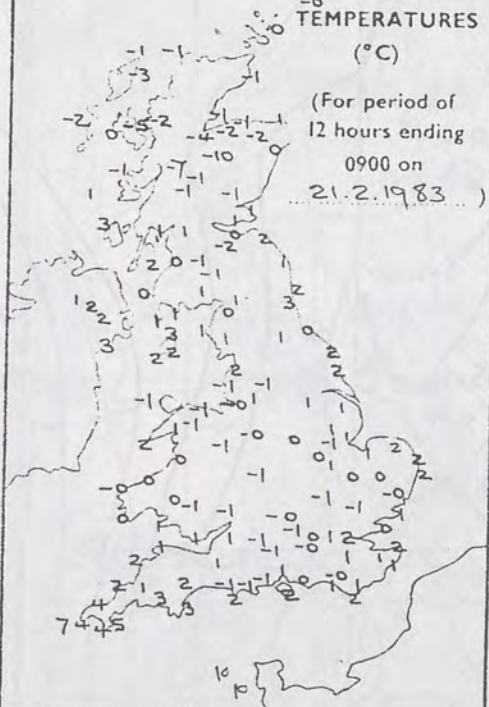 -0
TEMPERATURES
(°C)
(For period of
12 hours ending
0900 on
21.2.1983 )
0
-1 -1
-3
-1
-2 0 -5 -2
-1 -1 1
-4 -2 -2
-10 0
-1 -7
-1
1 -1 -1
3 1 1 1
0 2
-2
2 0 -1 1
-1
0 1 2
3
1 2 1 1
2 3 1 0 1 0
3 2 2 1 2
2
2 2
-1 -1
-1 -1 -0 1 1 1
2 -1 -1 -0 0 1 1 2
0 0 1 2
-1 0 0 2
-0 0
0 -1 -1 -1 -0
0 -1 -0 -1 1 0 1
1 -1 1 -1 -1 0 1 2
2 1 -1 -0 1 1 2
2 1 2 -1 -1 -1 0 -0 1
4 3 3 2 2 1 2
7 4 4 5
10
10